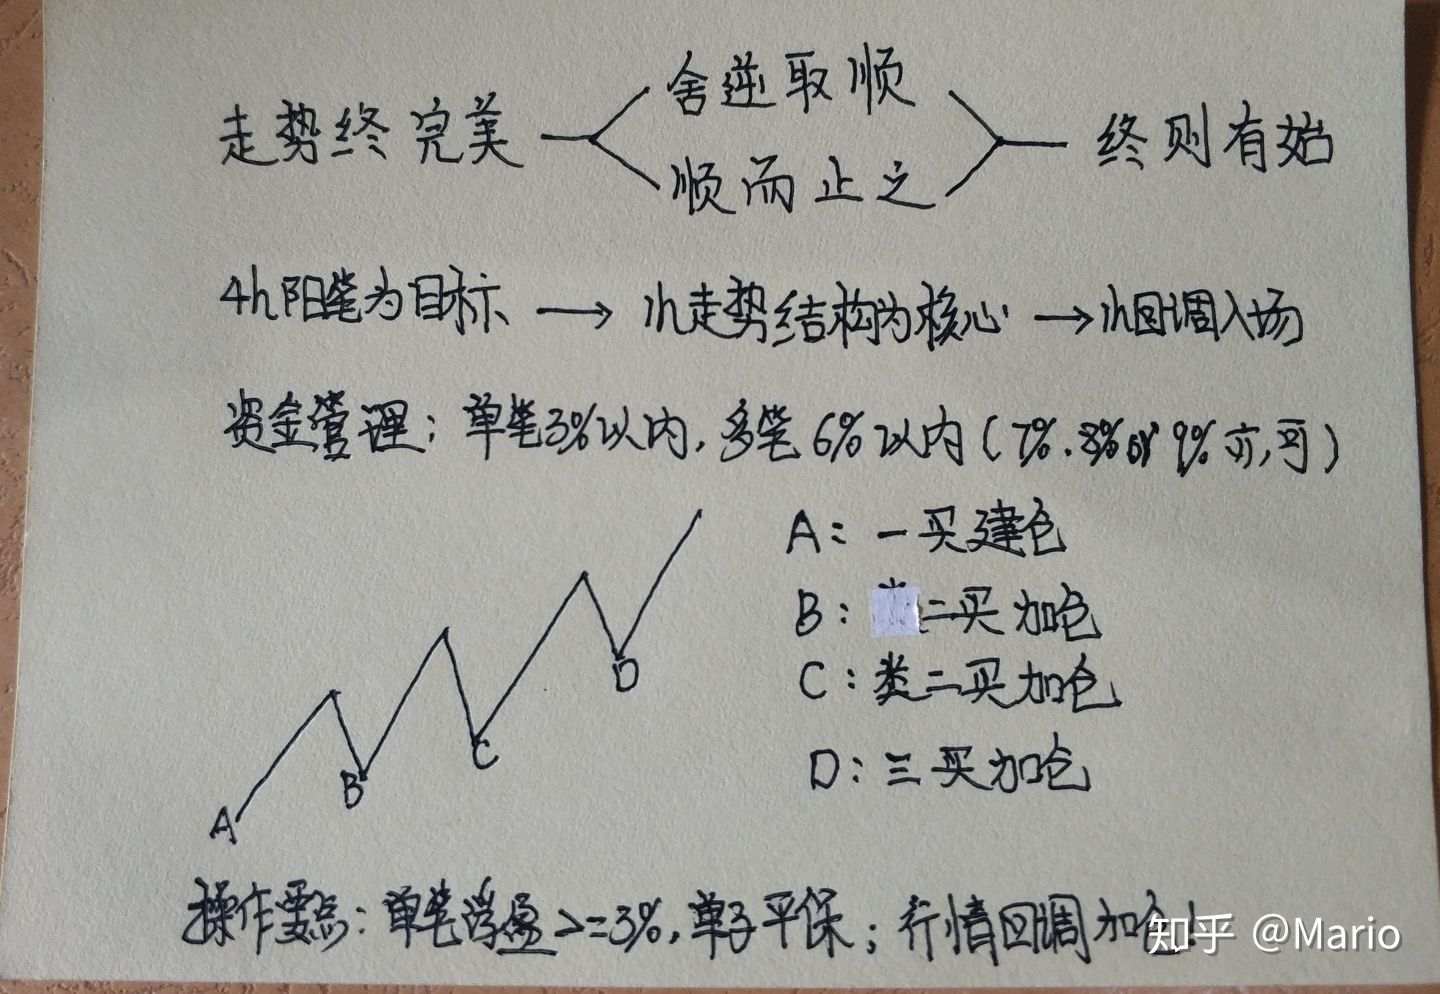 走势终完美
舍逆取顺
顺而止之
终则有始
4h阳笔为目标 → 1h走势结构为核心 → 1h回调入场
资金管理：单笔3%以内，多笔6%以内（7%.8%or 9%亦可）
A：一买建仓
B：二买加仓
C：类二买加仓
D：三买加仓
A
B
C
D
操作要点：单笔浮盈>=3%，单子平保；行情回调加仓！
知乎 @Mario